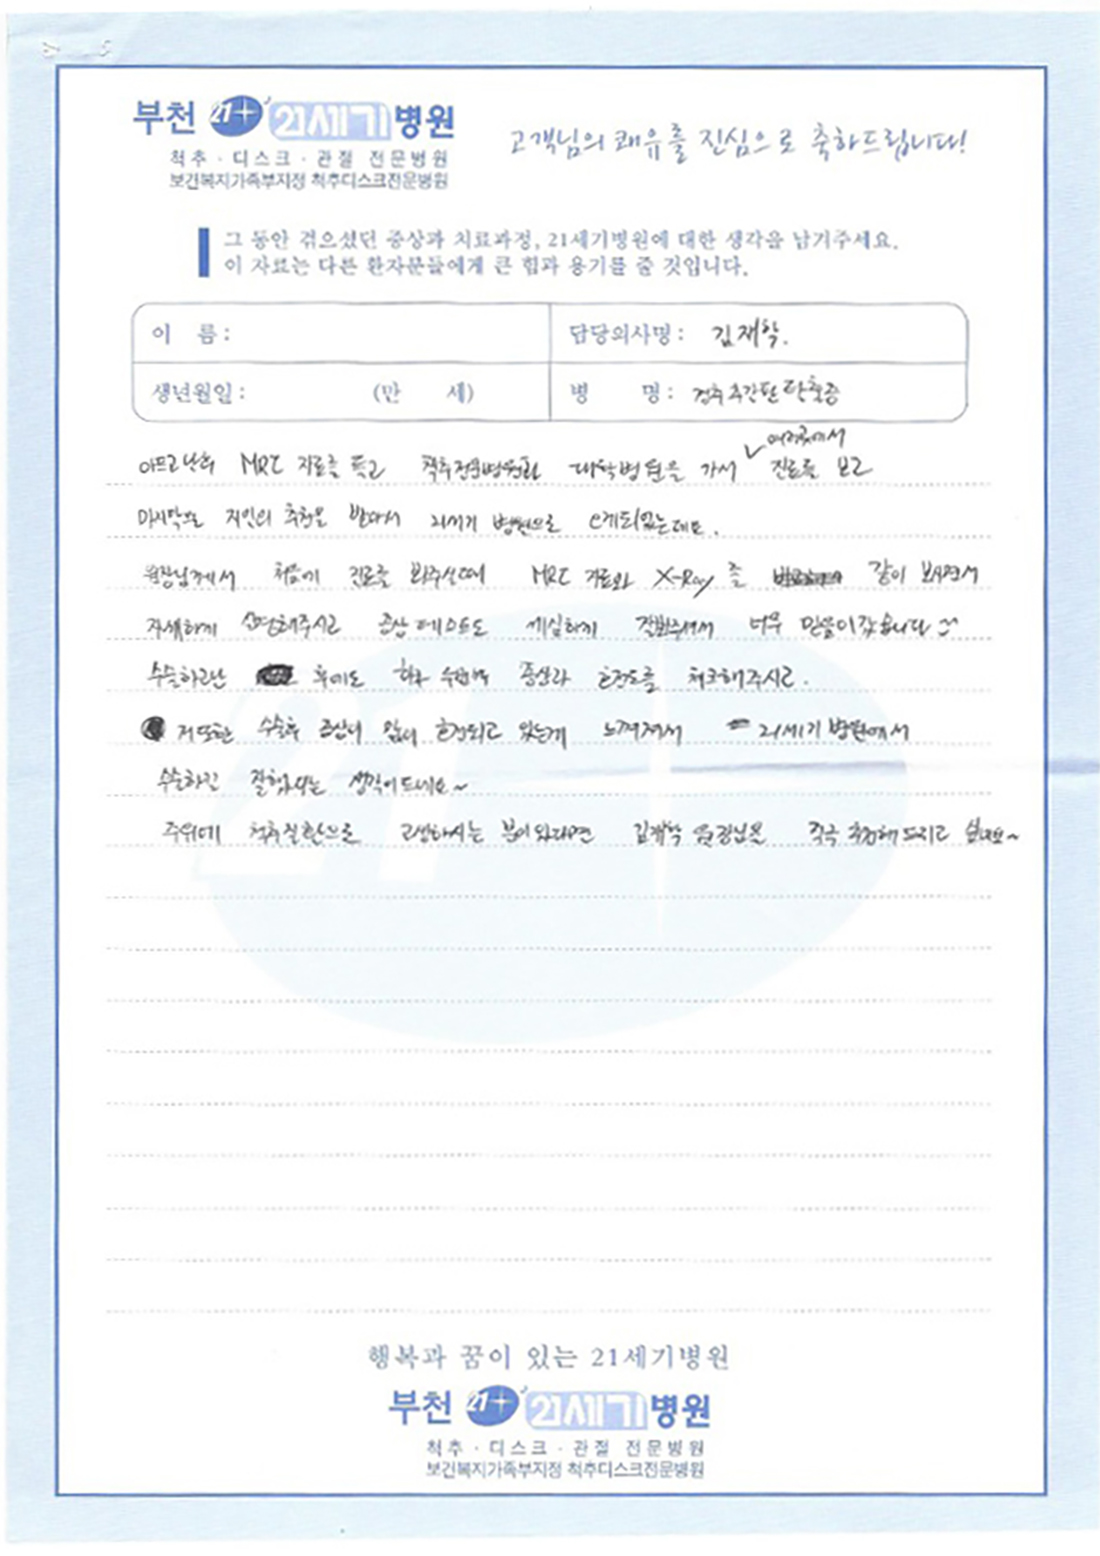 부천 21+ 21세기병원
척추 · 디스크 · 관절 전문병원
보건복지가족부지정 척추디스크전문병원
고객님의 쾌유를 진심으로 축하드립니다!
그 동안 겪으셨던 증상과 치료과정, 21세기병원에 대한 생각을 남겨주세요.
이 자료는 다른 환자분들에게 큰 힘과 용기를 줄 것입니다.
이 름 :
담당의사명 : 김재학.
생년월일 : (만 세)
병 명 : 경추 추간판 탈출증
여러곳에서
아프고 난후 MRI 자료를 들고 척추전문병원과 대학병원을 가서 진료를 보고
마지막으로 지인의 추천을 받아서 21세기 병원으로 오게되었는데요.
원장님께서 처음에 진료를 봐주실때 MRI 자료와 X-Ray 를 같이 보시면서
자세하게 설명해주시고 증상 테스트도 세심하게 진행해주셔서 너무 믿음이 갔습니다
수술하고난 후에도 증상과 호전도를 체크해주시고.
저또한 수술후 증상이 많이 호전되고 있는게 느껴져서 21세기 병원에서
수술하길 잘했다는 생각이 드네요~
주위에 척추질환으로 고생하시는 분이 있다면 김재학 원장님을 적극 추천해 드리고 싶네요~
행복과 꿈이 있는 21세기병원
부천 21+ 21세기병원
척추 · 디스크 · 관절 전문병원
보건복지가족부지정 척추디스크전문병원